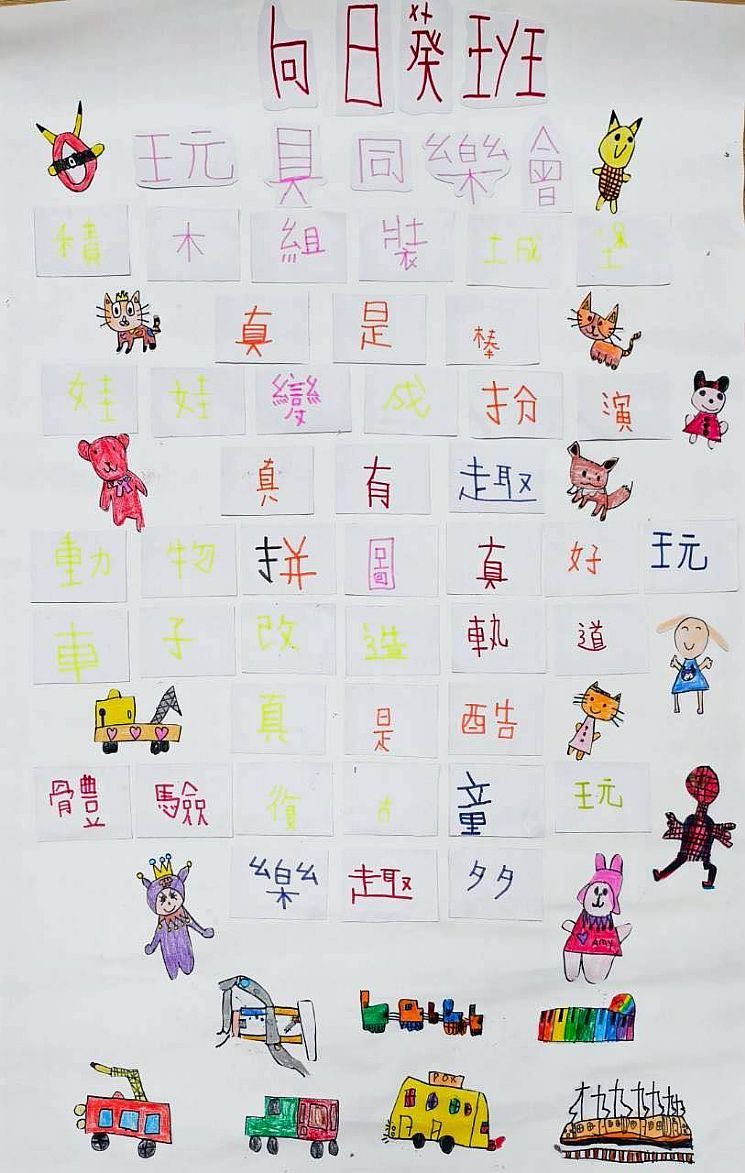 向日葵班
玩具同樂會
積木組裝城堡
真是棒
娃娃變成扮演
真有趣
動物拼圖真好玩
車子改造軌道
真是酷
體驗復古童玩
樂趣多
Amy
POX